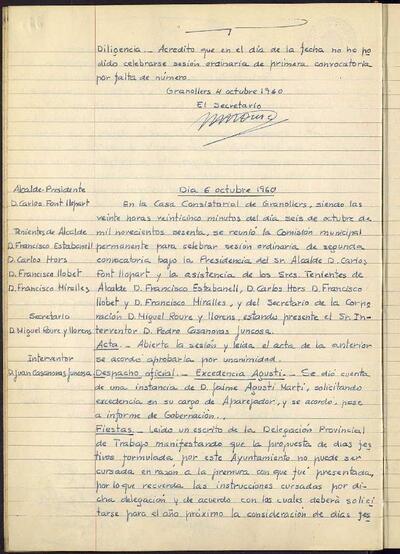 Diligencia.- Acredito que en el día de la fecha no ha po
dido celebrarse sesión ordinaria de primera convocatoria
por falta de número.
Granollers 4 octubre 1960
El Secretario
Alcalde-Presidente
D. Carlos Font Llopart
Tenientes de Alcalde
D. Francisco Estabanell
D. Carlos Hors
D. Francisco Llobet
D. Francisco Miralles
Secretario
D. Miguel Roure y Llorens
Interventor
D. Juan Casanovas Juncosa.
Dia 6 octubre 1960
En la Casa Consistorial de Granollers, siendo las
veinte horas veinticinco minutos del día seis de octubre de
mil novecientos sesenta, se reunió la Comisión municipal
permanente para celebrar sesión ordinaria de segunda
convocatoria bajo la Presidencia del Sr. Alcalde D. Carlos
Font Llopart y la asistencia de los Sres. Tenientes de
Alcalde D. Francisco Estabanell, D. Carlos Hors D. Francisco
Llobet y D. Francisco Miralles, y del Secretario de la Corpo
ración D. Miguel Roure y Llorens, estando presente el Sr. In-
terventor D. Pedro Casanovas Juncosa.
Acta.- Abierta la sesión y leída, el acta de la anterior
se acordo aprobarla por unanimidad.
Despacho oficial.- Excedencia Agustí.- Se dió cuenta
de una instancia de D. Jaime Agustí Martí, solicitando
excedencia en su cargo de Aparejador, y se acordo, pase
a informe de Gobernación.
Fiestas.- Leído un escrito de la Delegación Provincial
de Trabajo manifestando que la propuesta de dias fes
tivos formulada por este Ayuntamiento no puede ser
cursada en razón a la premura con que fué presentada,
por lo que recuerda las instrucciones cursadas por di-
cha delegación y de acuerdo con las cuales deberá solici
tarse para el año próximo la consideración de dias fes